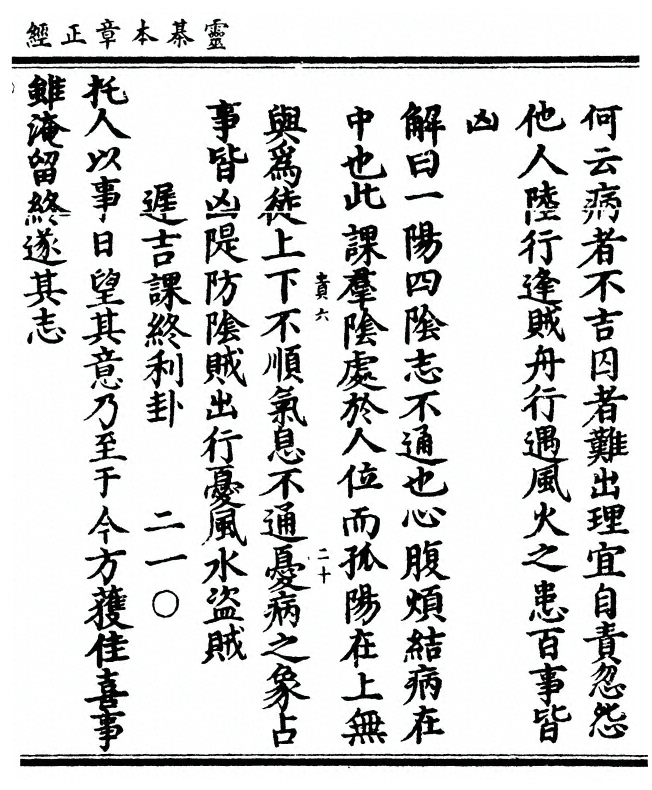 靈棊本章正經
何云病者不吉囚者難出理宜自責忽怨
他人陸行逢賊舟行遇風火之患百事皆
凶
解曰一陽四陰志不通也心腹煩結病在
中也此課羣陰處於人位而孤陽在上無
責六
二十
與爲徒上下不順氣息不通憂病之象占
事皆凶隄防陰賊出行憂風水盜賊
遲吉課終利卦 二一〇
托人以事日望其意乃至于今方獲佳喜事
雖淹留終遂其志